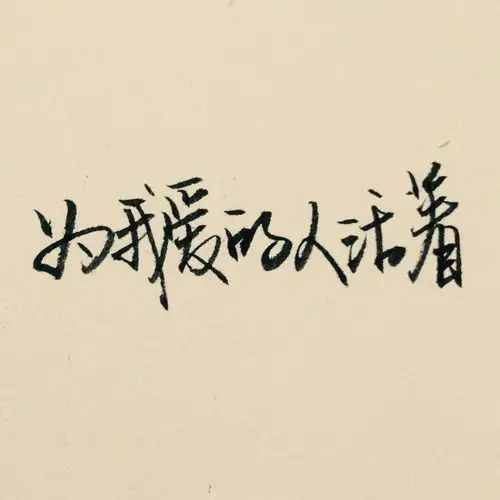 为我爱的人活着